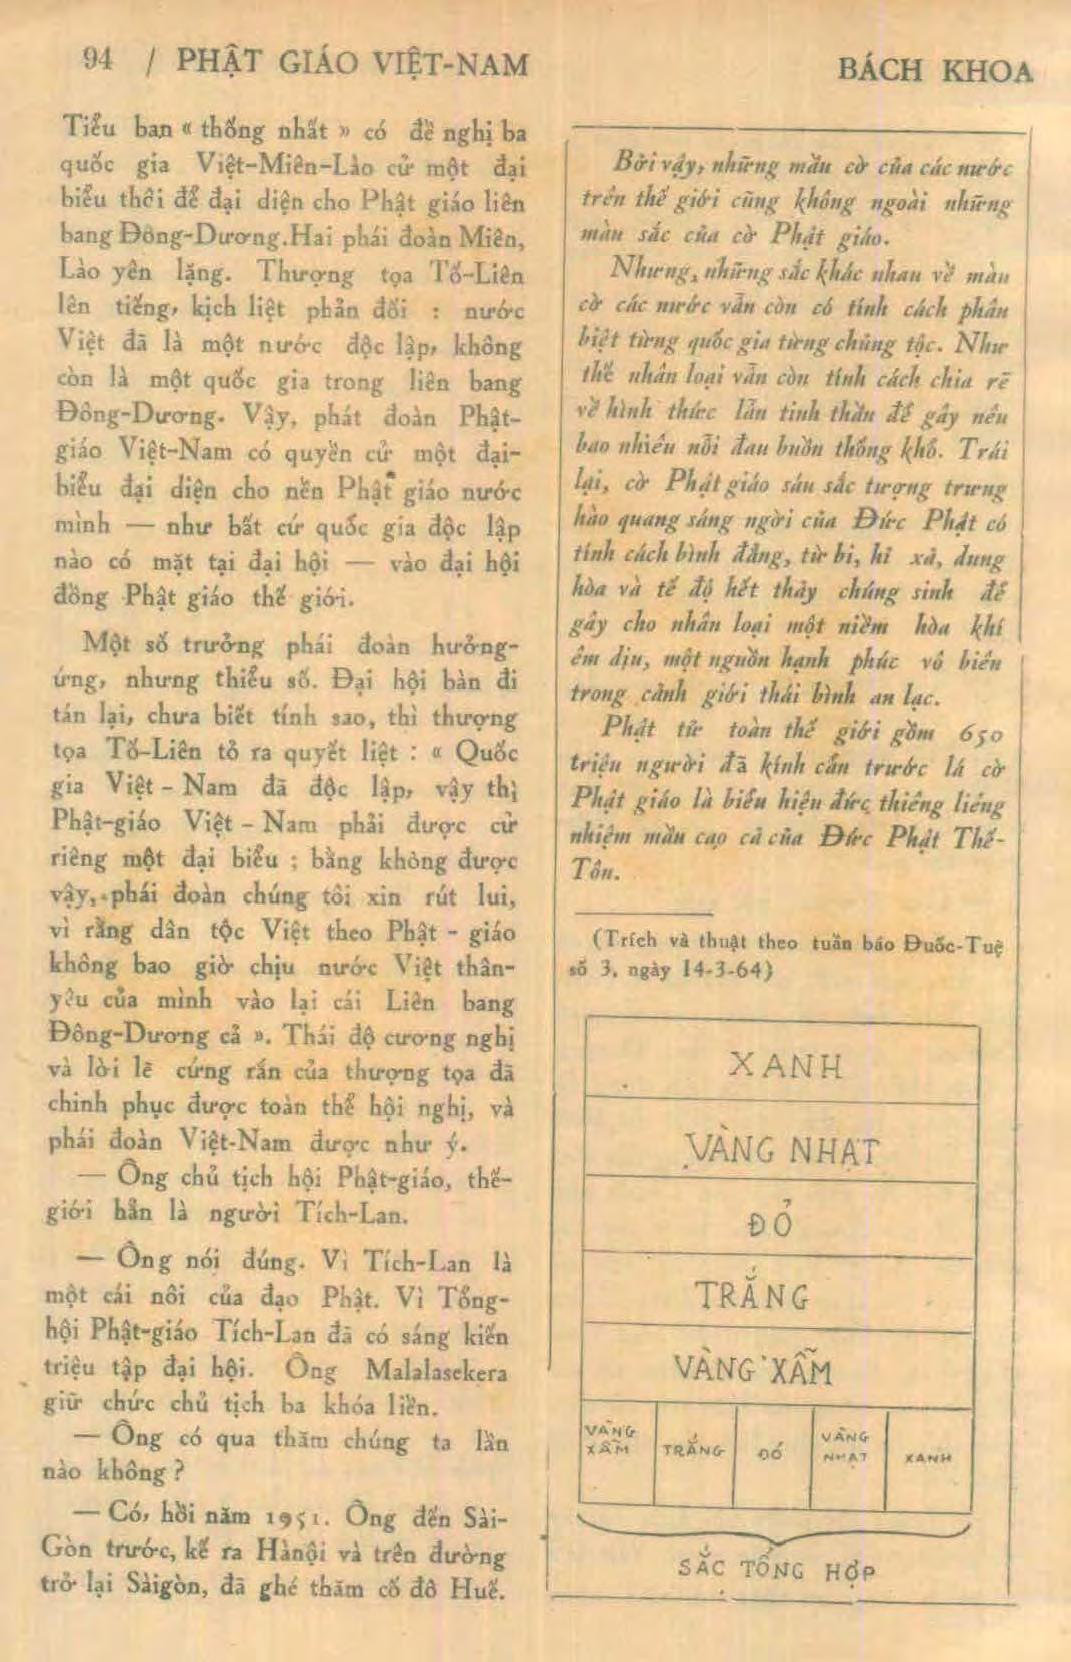 94 / PHẬT GIÁO VIỆT-NAM
BÁCH KHOA
Tiểu ban « thống nhất » có đề nghị ba
quốc gia Việt-Miên-Lào cử một đại
biểu thôi để đại diện cho Phật giáo liên
bang Đông-Dương.Hai phái đoàn Miên,
Lào yên lặng. Thượng tọa Tố-Liên
lên tiếng, kịch liệt phản đối : nước
Việt đã là một nước độc lập, không
còn là một quốc gia trong liên bang
Đông-Dương. Vậy, phát đoàn Phật-
giáo Việt-Nam có quyền cử một đại-
biểu đại diện cho nền Phật giáo nước
mình — như bất cứ quốc gia độc lập
nào có mặt tại đại hội — vào đại hội
đồng Phật giáo thế giới.
Một số trưởng phái đoàn hưởng-
ứng, nhưng thiểu số. Đại hội bàn đi
tán lại, chưa biết tính sao, thì thượng
tọa Tố-Liên tỏ ra quyết liệt : « Quốc
gia Việt - Nam đã độc lập, vậy thị
Phật-giáo Việt - Nam phải được cử
riêng một đại biểu ; bằng không được
vậy, phái đoàn chúng tôi xin rút lui,
vì rằng dân tộc Việt theo Phật - giáo
không bao giờ chịu nước Việt thân-
yêu của mình vào lại cái Liên bang
Đông-Dương cả ». Thái độ cương nghị
và lời lẽ cứng rắn của thượng tọa đã
chinh phục được toàn thể hội nghị, và
phái đoàn Việt-Nam được như ý.
— Ông chủ tịch hội Phật-giáo, thế-
giới hẳn là người Tích-Lan.
— Ông nói đúng. Vì Tích-Lan là
một cái nôi của đạo Phật. Vì Tổng-
hội Phật-giáo Tích-Lan đã có sáng kiến
triệu tập đại hội. Ông Malalasekera
giữ chức chủ tịch ba khóa liền.
— Ông có qua thăm chúng ta lần
nào không ?
— Có, hồi năm 1951. Ông đến Sài-
Gòn trước, kế ra Hànội và trên đường
trở lại Sàigòn, đã ghé thăm cố đô Huế.
Bởi vậy, những mầu cờ của các nước
trên thế giới cũng không ngoài những
màu sắc của cờ Phật giáo.
Nhưng, những sắc khác nhau về màu
cờ các nước vẫn còn có tính cách phân
biệt từng quốc gia từng chủng tộc. Như
thế nhân loại vẫn còn tính cách chia rẽ
về hình thức lẫn tinh thần để gây nên
bao nhiêu nỗi đau buồn thống khổ. Trái
lại, cờ Phật giáo sáu sắc tượng trưng
hào quang sáng ngời của Đức Phật có
tính cách bình đẳng, từ bi, hỉ xả, dung
hòa và tế độ hết thảy chúng sinh để
gây cho nhân loại một niềm hòa khí
êm dịu, một nguồn hạnh phúc vô biên
trong cảnh giới thái bình an lạc.
Phật tử toàn thế giới gồm 650
triệu người đã kính cẩn trước lá cờ
Phật giáo là biểu hiệu đức thiêng liêng
nhiệm mầu cao cả của Đức Phật Thế-
Tôn.
(Trích và thuật theo tuần báo Đuốc-Tuệ
số 3, ngày 14-3-64)
XANH
VÀNG NHẠT
ĐỎ
TRẮNG
VÀNG XẪM
VÀNG
XẪM
TRẮNG
ĐỎ
VÀNG
NHẠT
XANH
SẮC TỔNG HỢP